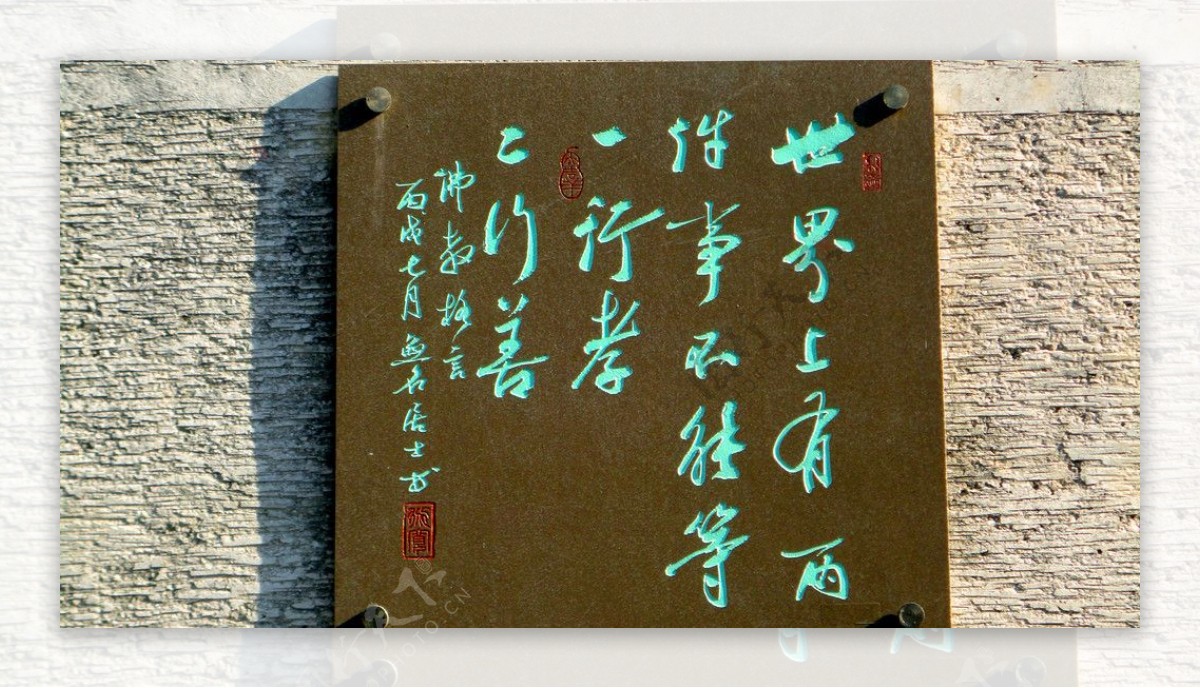 世界上有两
件事不能等
一行孝
二行善
佛教格言
丙戌七月无名居士书